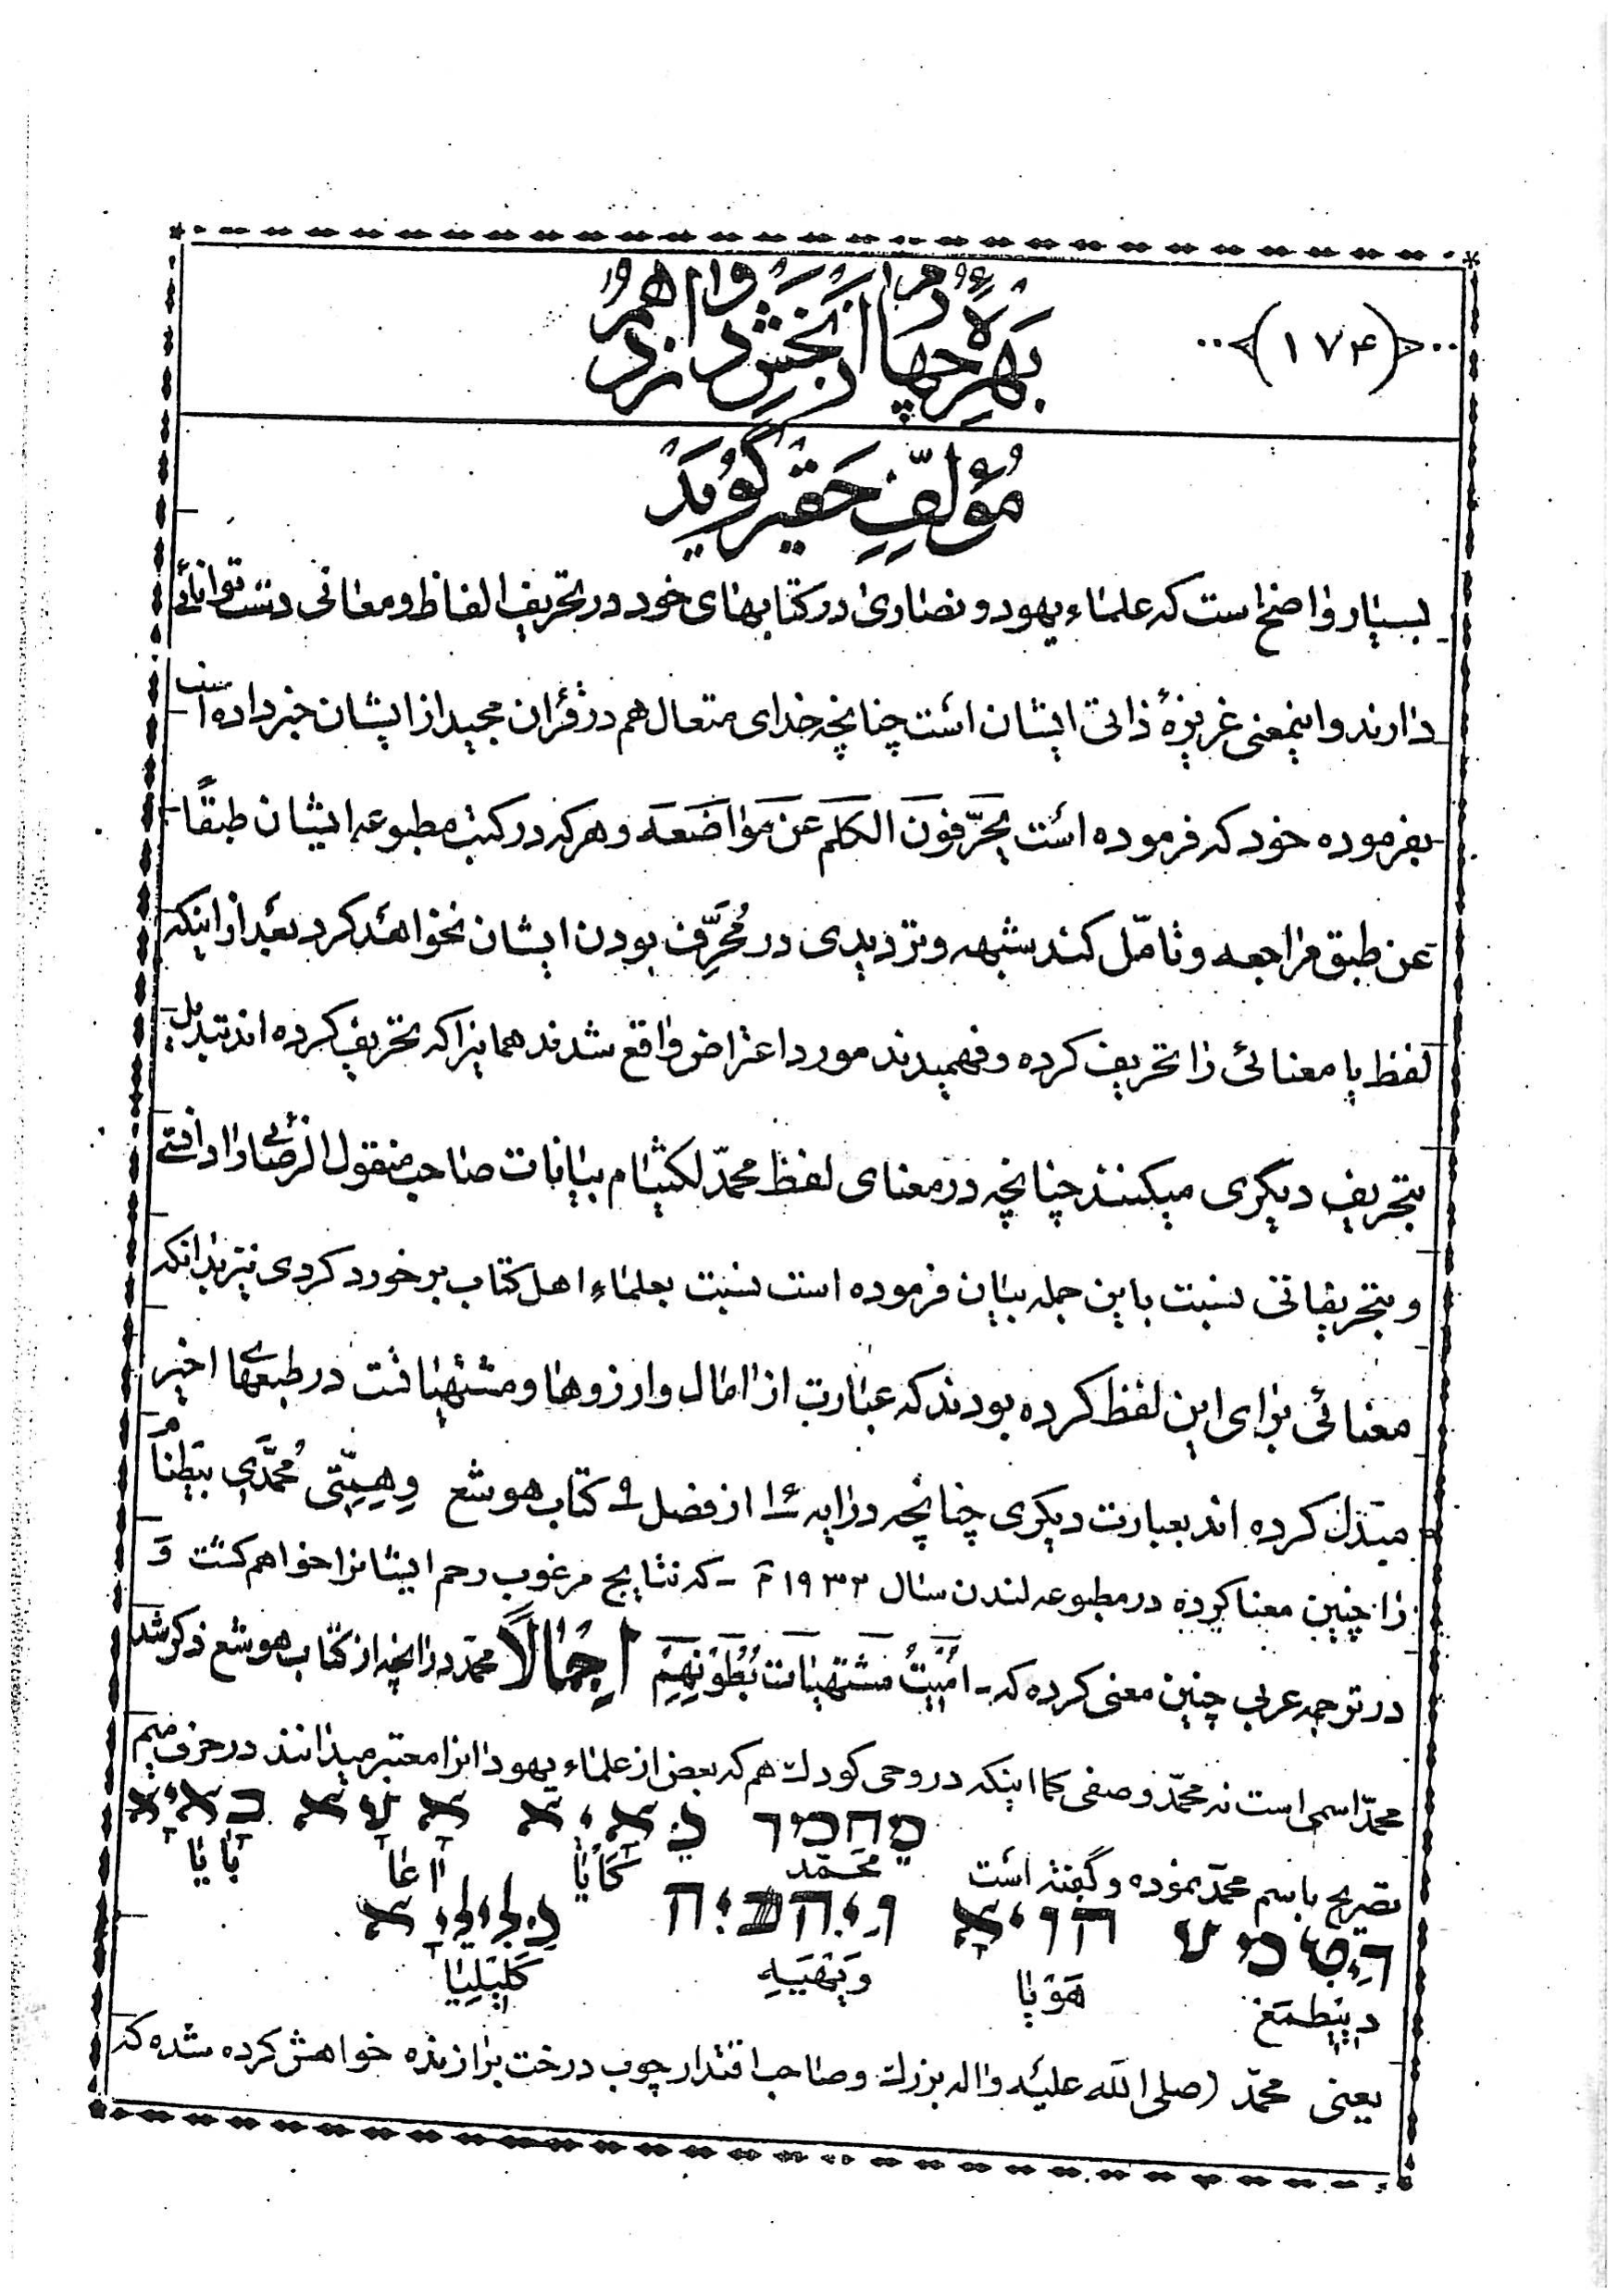 ﴿۱۷۴﴾
بهره چهارم از بخش دوازدهم
مُؤلّفِ حَقیر گُویَد
بسیار واضح است که علماء یهود و نصاری در کتابهای خود در تحریف الفاظ و معانی دست توانائی
دارند و اینمعنی غریزهٔ ذاتی ایشان است چنانچه خدای متعال هم در قرآن مجید از ایشان خبر داده است
بفرموده خود که فرموده است یُحَرّفونَ الکَلَمَ عَن مَواضَعَه و هر که در کتب مطبوعه ایشان طبقًا
عَن طبق مراجعه و تأمّل کند شبهه و تردیدی در مُحَرِّف بودن ایشان نخواهد کرد بعد از اینکه
لفظ یا معنائی را تحریف کرده و فهمیدند مورد اعتراض واقع شدند همانرا که تحریف کرده اند تبدیل
بتحریف دیگری میکنند چنانچه در معنای لفظ محمّد لکیثام بیانات صاحب منقول الرضائی را دانستی
و بتحریفاتی نسبت باین جمله بیان فرموده است نسبت بعلماءِ اهل کتاب برخورد کردی نیز بدانکه
معنائی برای این لفظ کرده بودند که عبارت از اٰمال و ارزوها و مشتهیاتست در طبعهای اخیر
مبدّل کرده اند بعبارت دیگری چنانچه در ایه ۱۶ از فصل ۹ کتاب هوشع وِهِمِتّی مُحمَّدِی بیطنام
را چنین معنا کرده در مطبوعه لندن سال ۱۹۳۲ م - که نتایج مرغوب رحم ایشانرا خواهم کشت و
در ترجمه عربی چنین معنی کرده که - اُمیتُ مشتهیات بُطُونِهِم اِجمٰالاً محمّد در انچه از کتاب هوشع ذکر شد
محمّد اسمی است نه محمّد وصفی کما اینکه در وحی کودک هم که بعض از علماء یهود انرا معتبر میدانند در حرف میم
מחמד כאיא אעא באיא
تصریح باسم محمّد نموده و گفته است محَمَّد کٰایٰا اٰاعٰا بٰایٰا
דיטמע הויא ויהביה כלילא
دیِیطمَع هَوَیٰا وِیَهیَبِه کَلیلِیٰا
یعنی محمّد (صلی الله علیه واله بزرک و صاحب اقتدار چوب درخت برازنده خواهش کرده شده که